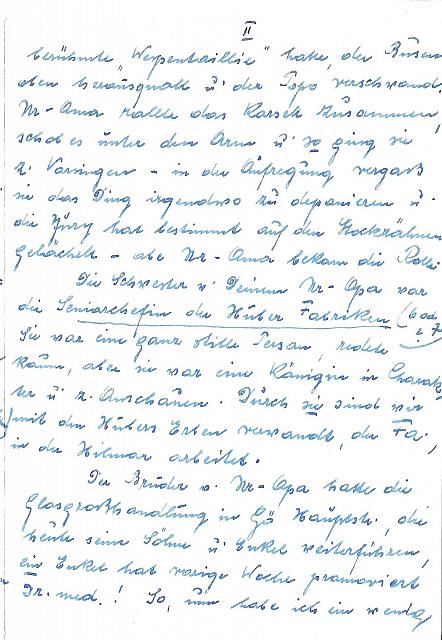 II
berühmte „Wespentaillie" hatte, der Busen
oben herausquoll u' der Popo verschwand,
Ur-Oma rollte das Korsett zusammen,
schob es unter den Arm u' so ging sie
z. Vorsingen – in der Aufregung vergaß
sie das Ding irgendwo zu deponieren u'
die Jury hat bestimmt auf den Stockzähnen
gelächelt – aber Ur-Oma bekam die Rolle.
Die Schwester v. Deinem Ur-Opa war
die Seniorchefin der Huber Fabriken
Sie war eine ganz stille Person, redete
kaum, aber sie war eine Königin in Charak-
ter u' z. Anschauen. Durch sie sind wir
mit den Hubers Erben verwandt, der Fa.,
in der Hilmar arbeitet.
Der Bruder v. Ur-Opa hatte die
Glasgroßhandlung in Gö Hauptstr., die
heute seine Söhne u' Enkel weiterführen,
ein Enkel hat vorige Woche promoviert
Dr. med.! So, nun habe ich ein wenig